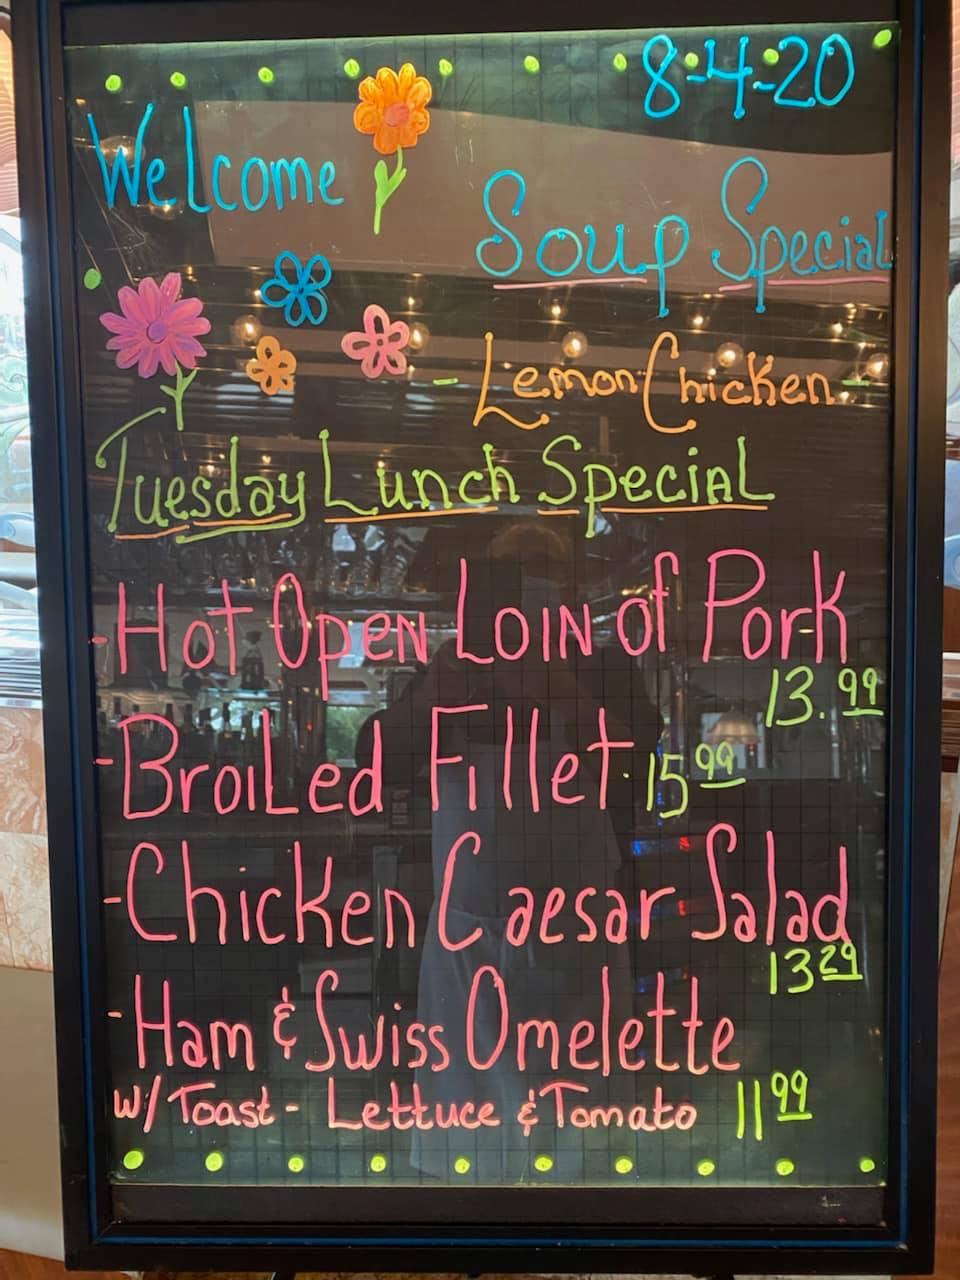 8-4-20
Welcome
Soup Special
- Lemon Chicken -
Tuesday Lunch Special
- Hot Open Loin of Pork
13.99
- Broiled Fillet 15 99
- Chicken Caesar Salad
13 29
- Ham & Swiss Omelette
w/ Toast - Lettuce & Tomato 11 99